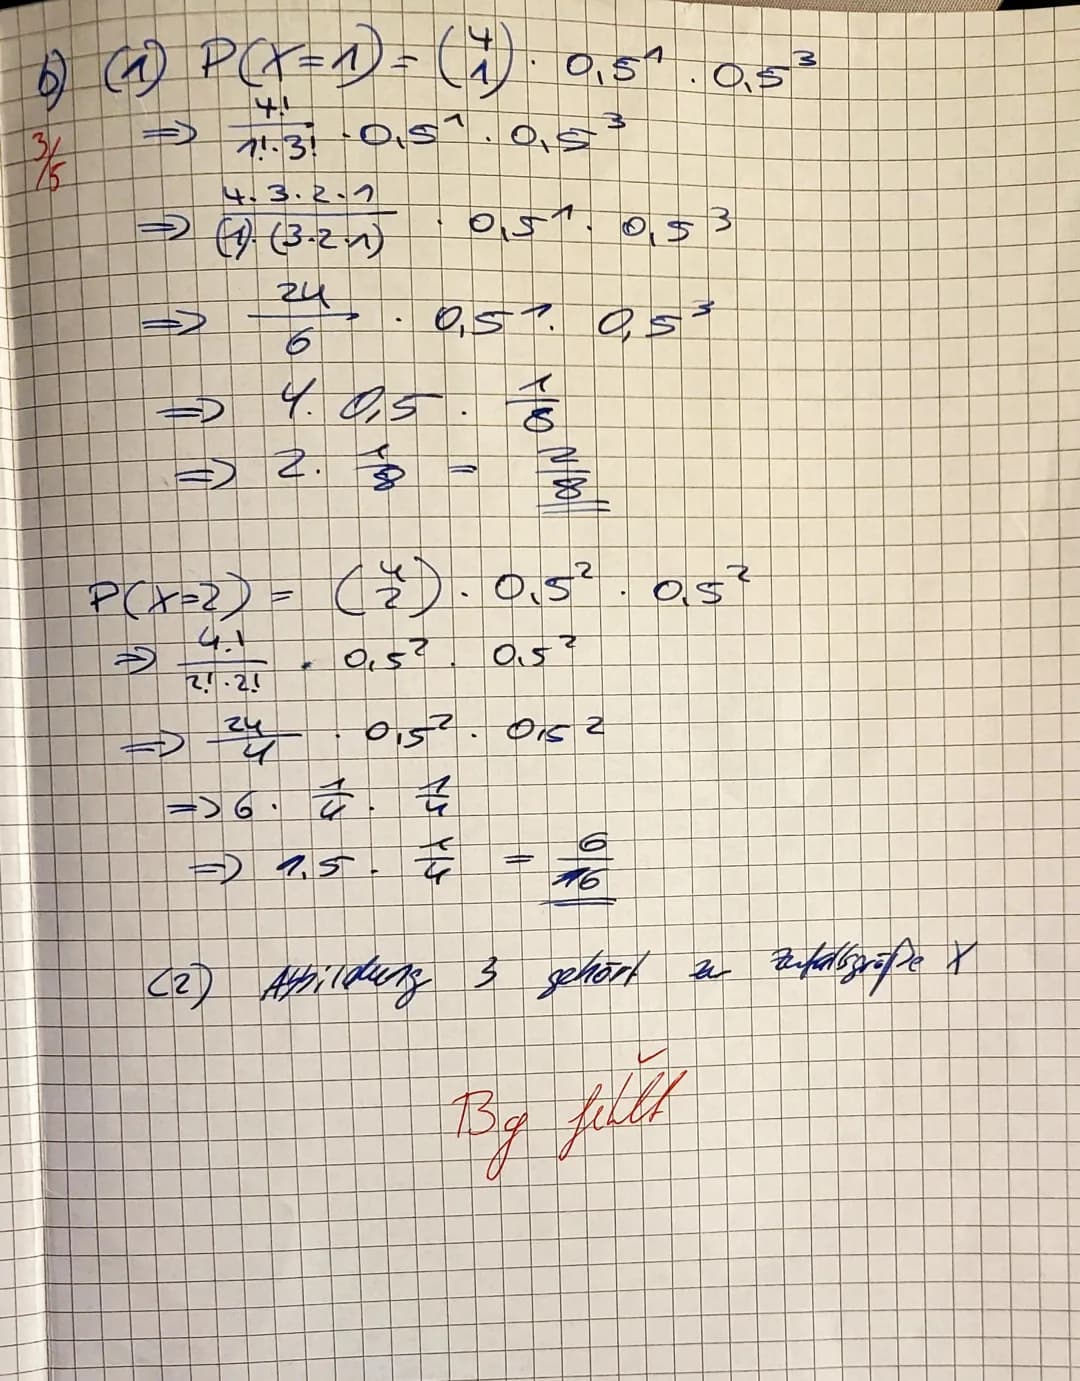 b) (1) P(X=1) = (4 1) · 0,5^1 · 0,5^3
3/5
=> 4!/(1!·3!) · 0,5^1 · 0,5^3
=> 4·3·2·1/((1)·(3·2·1)) · 0,5^1 · 0,5^3
=> 24/6 · 0,5^1 · 0,5^3
=> 4 · 0,5 · 1/8
=> 2 · 1/8 = 2/8
P(X=2) = (4 2) · 0,5^2 · 0,5^2
=> 4!/(2!·2!) · 0,5^2 · 0,5^2
=> 24/4 · 0,5^2 · 0,5^2
=> 6 · 1/4 · 1/4
=> 1,5 · 1/4 = 6/16
(2) Abbildung 3 gehört zu Zufallsgröße X
Bg fehlt